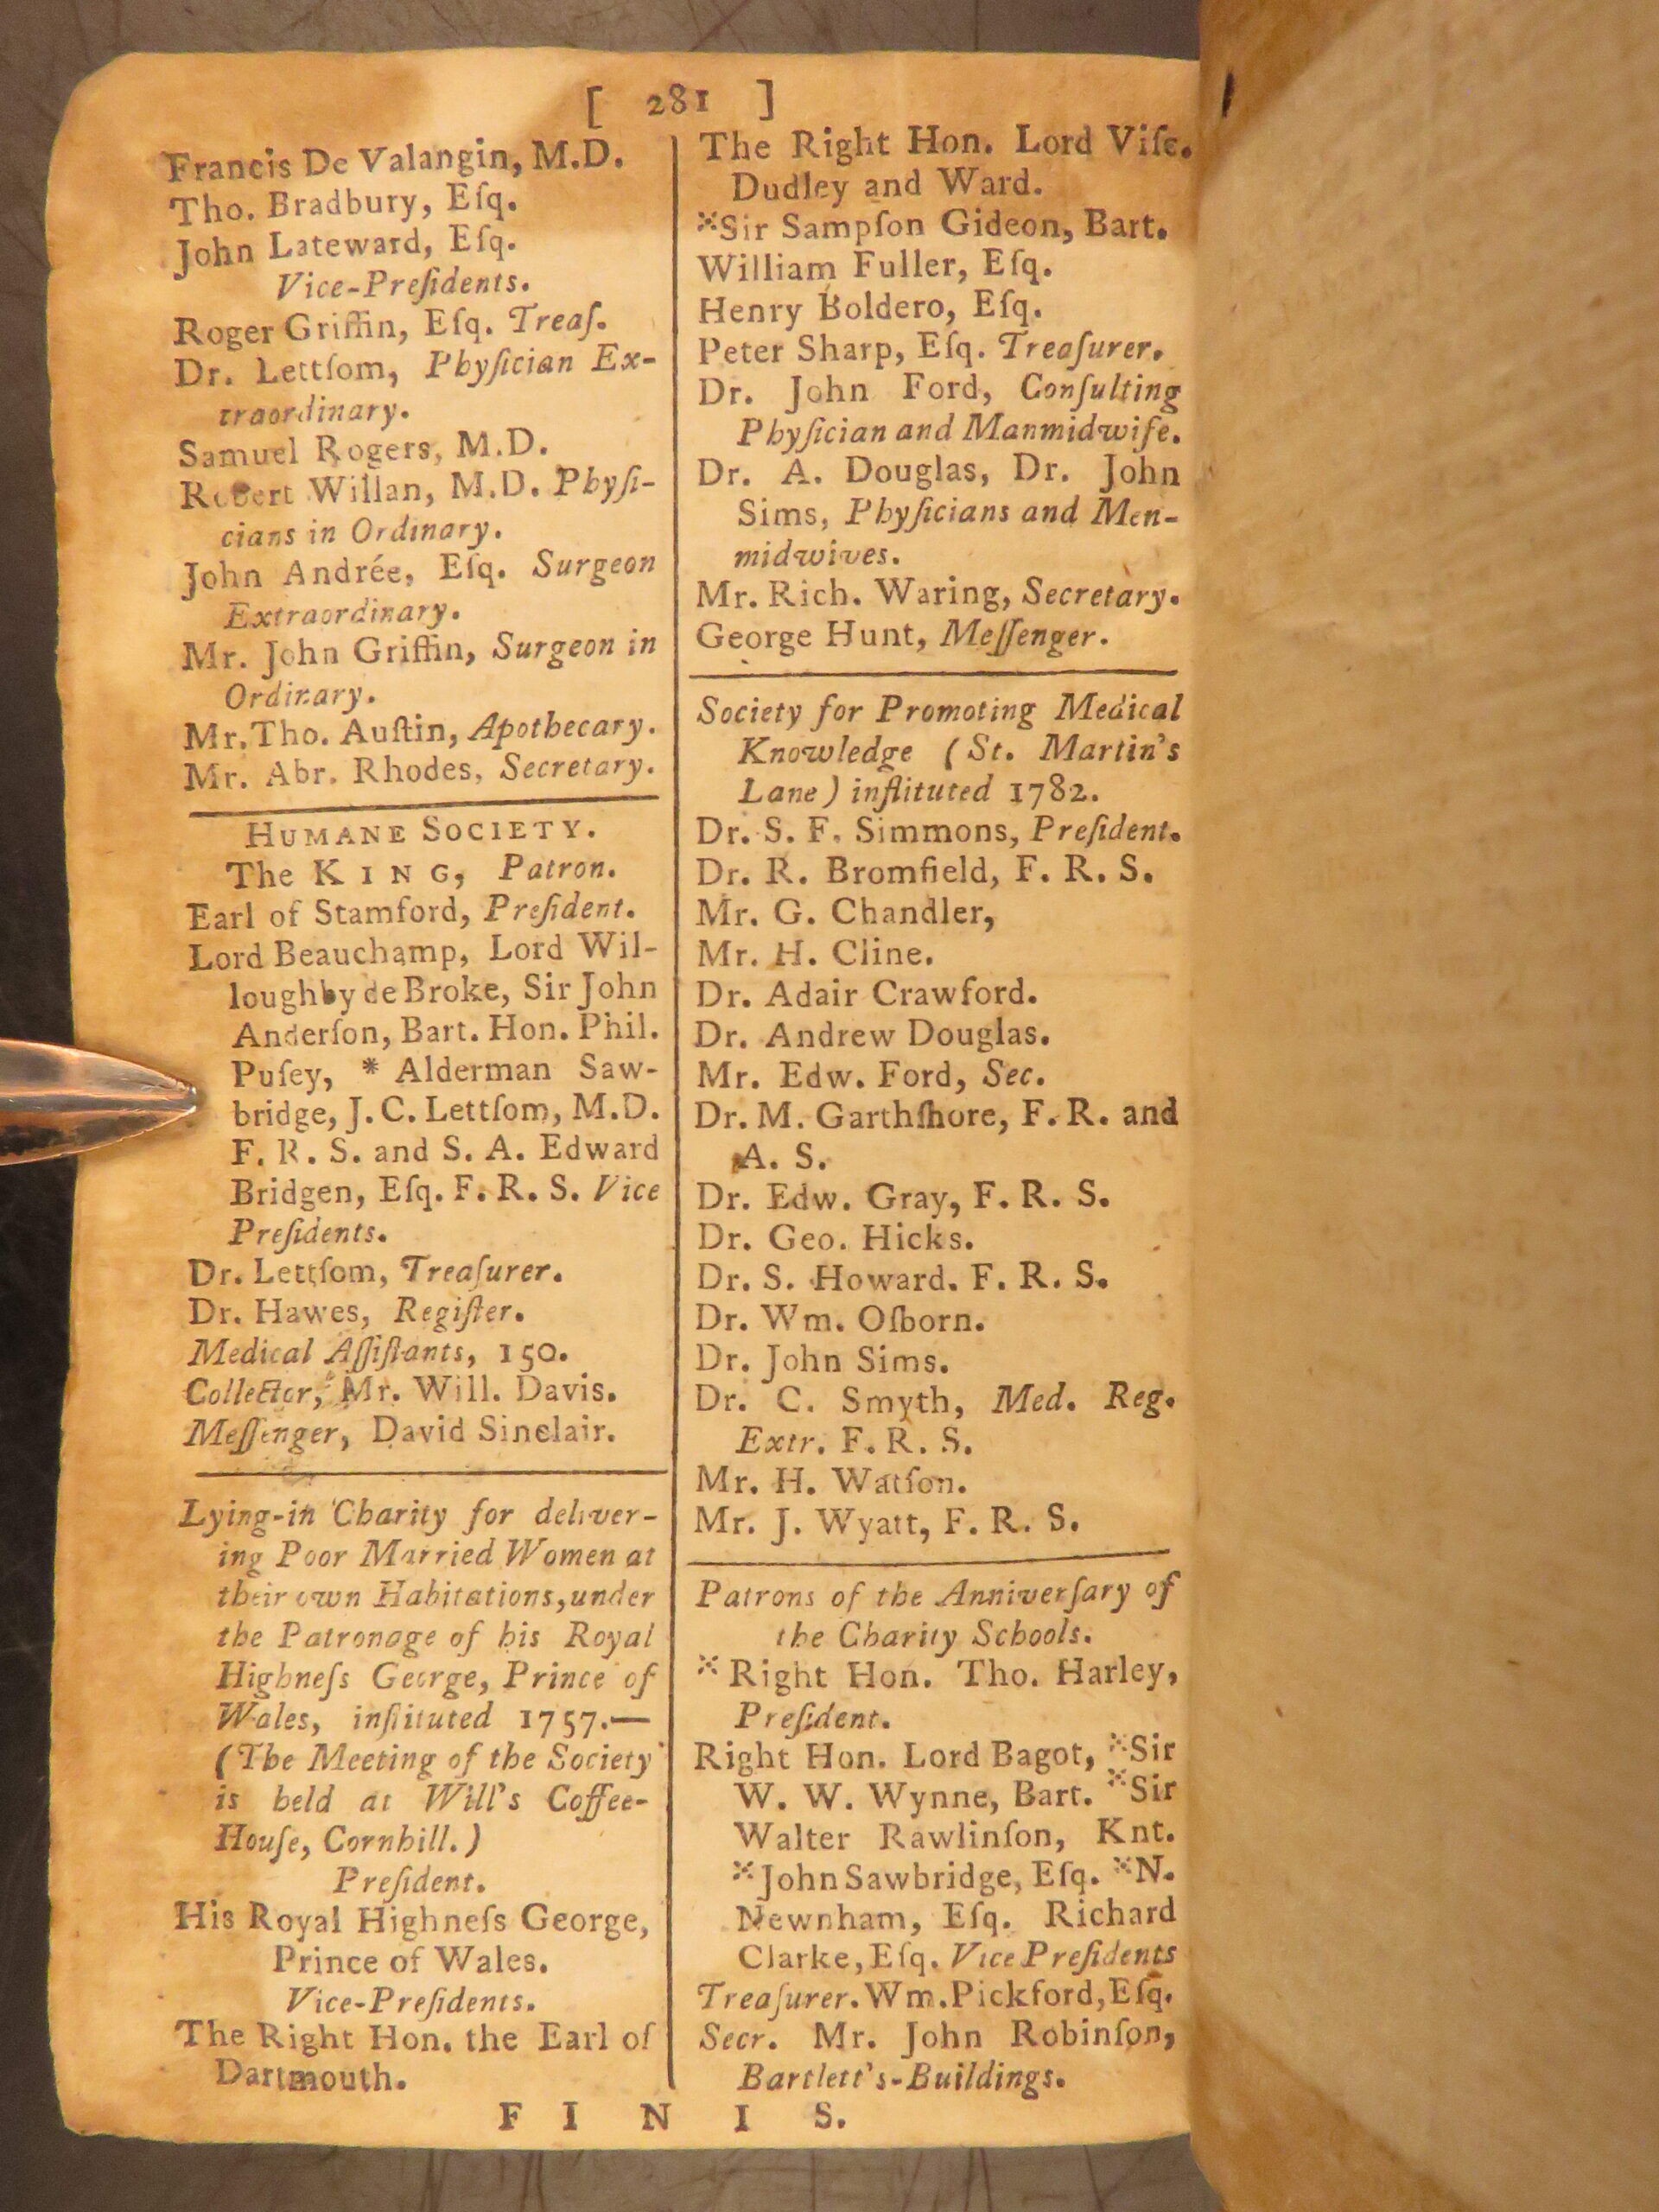 [ 281 ]
Francis De Valangin, M.D.
Tho. Bradbury, Eſq.
John Lateward, Eſq.
Vice-Preſidents.
Roger Griffin, Eſq. Treaſ.
Dr. Lettſom, Phyſician Ex-
traordinary.
Samuel Rogers, M.D.
Robert Willan, M.D. Phyſi-
cians in Ordinary.
John Andrée, Eſq. Surgeon
Extraordinary.
Mr. John Griffin, Surgeon in
Ordinary.
Mr. Tho. Auſtin, Apothecary.
Mr. Abr. Rhodes, Secretary.
HUMANE SOCIETY.
The KING, Patron.
Earl of Stamford, Preſident.
Lord Beauchamp, Lord Wil-
loughby de Broke, Sir John
Anderſon, Bart. Hon. Phil.
Puſey, * Alderman Saw-
bridge, J. C. Lettſom, M.D.
F. R. S. and S. A. Edward
Bridgen, Eſq. F. R. S. Vice
Preſidents.
Dr. Lettſom, Treaſurer.
Dr. Hawes, Regiſter.
Medical Aſſiſtants, 150.
Collector, Mr. Will. Davis.
Meſſenger, David Sinclair.
Lying-in Charity for deliver-
ing Poor Married Women at
their own Habitations, under
the Patronage of his Royal
Highneſs George, Prince of
Wales, inſtituted 1757.—
(The Meeting of the Society
is held at Will's Coffee-
Houſe, Cornhill.)
Preſident.
His Royal Highneſs George,
Prince of Wales.
Vice-Preſidents.
The Right Hon. the Earl of
Dartmouth.
The Right Hon. Lord Viſc.
Dudley and Ward.
⁕Sir Sampſon Gideon, Bart.
William Fuller, Eſq.
Henry Boldero, Eſq.
Peter Sharp, Eſq. Treaſurer.
Dr. John Ford, Conſulting
Phyſician and Manmidwife.
Dr. A. Douglas, Dr. John
Sims, Phyſicians and Men-
midwives.
Mr. Rich. Waring, Secretary.
George Hunt, Meſſenger.
Society for Promoting Medical
Knowledge (St. Martin's
Lane) inſtituted 1782.
Dr. S. F. Simmons, Preſident.
Dr. R. Bromfield, F. R. S.
Mr. G. Chandler,
Mr. H. Cline.
Dr. Adair Crawford.
Dr. Andrew Douglas.
Mr. Edw. Ford, Sec.
Dr. M. Garthſhore, F. R. and
A. S.
Dr. Edw. Gray, F. R. S.
Dr. Geo. Hicks.
Dr. S. Howard. F. R. S.
Dr. Wm. Oſborn.
Dr. John Sims.
Dr. C. Smyth, Med. Reg.
Extr. F. R. S.
Mr. H. Watſon.
Mr. J. Wyatt, F. R. S.
Patrons of the Anniverſary of
the Charity Schools.
⁕Right Hon. Tho. Harley,
Preſident.
Right Hon. Lord Bagot, ⁕Sir
W. W. Wynne, Bart. ⁕Sir
Walter Rawlinſon, Knt.
⁕John Sawbridge, Eſq. ⁕N.
Newnham, Eſq. Richard
Clarke, Eſq. Vice Preſidents
Treaſurer. Wm. Pickford, Eſq.
Secr. Mr. John Robinſon,
Bartlett's-Buildings.
FINIS.